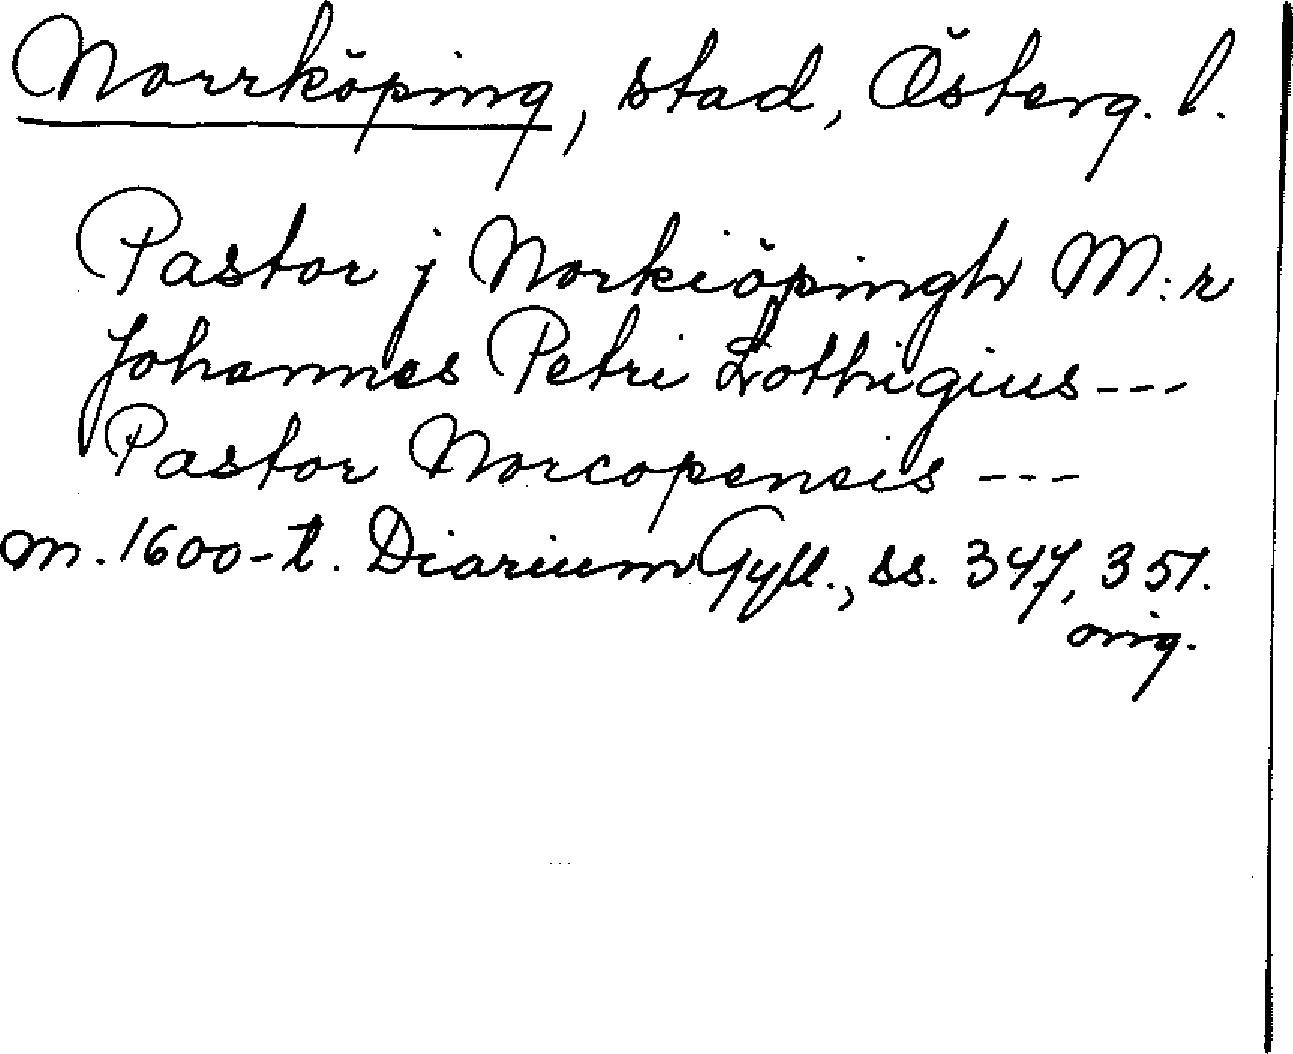 Norrköping, stad, Österg. l.
Pastor j Norkiöpingh M:r
Johannes Petri Lothigius---
Pastor Norcopensis ---
m. 1600-t. Diarium Gyll., ss. 347, 351.
orig.